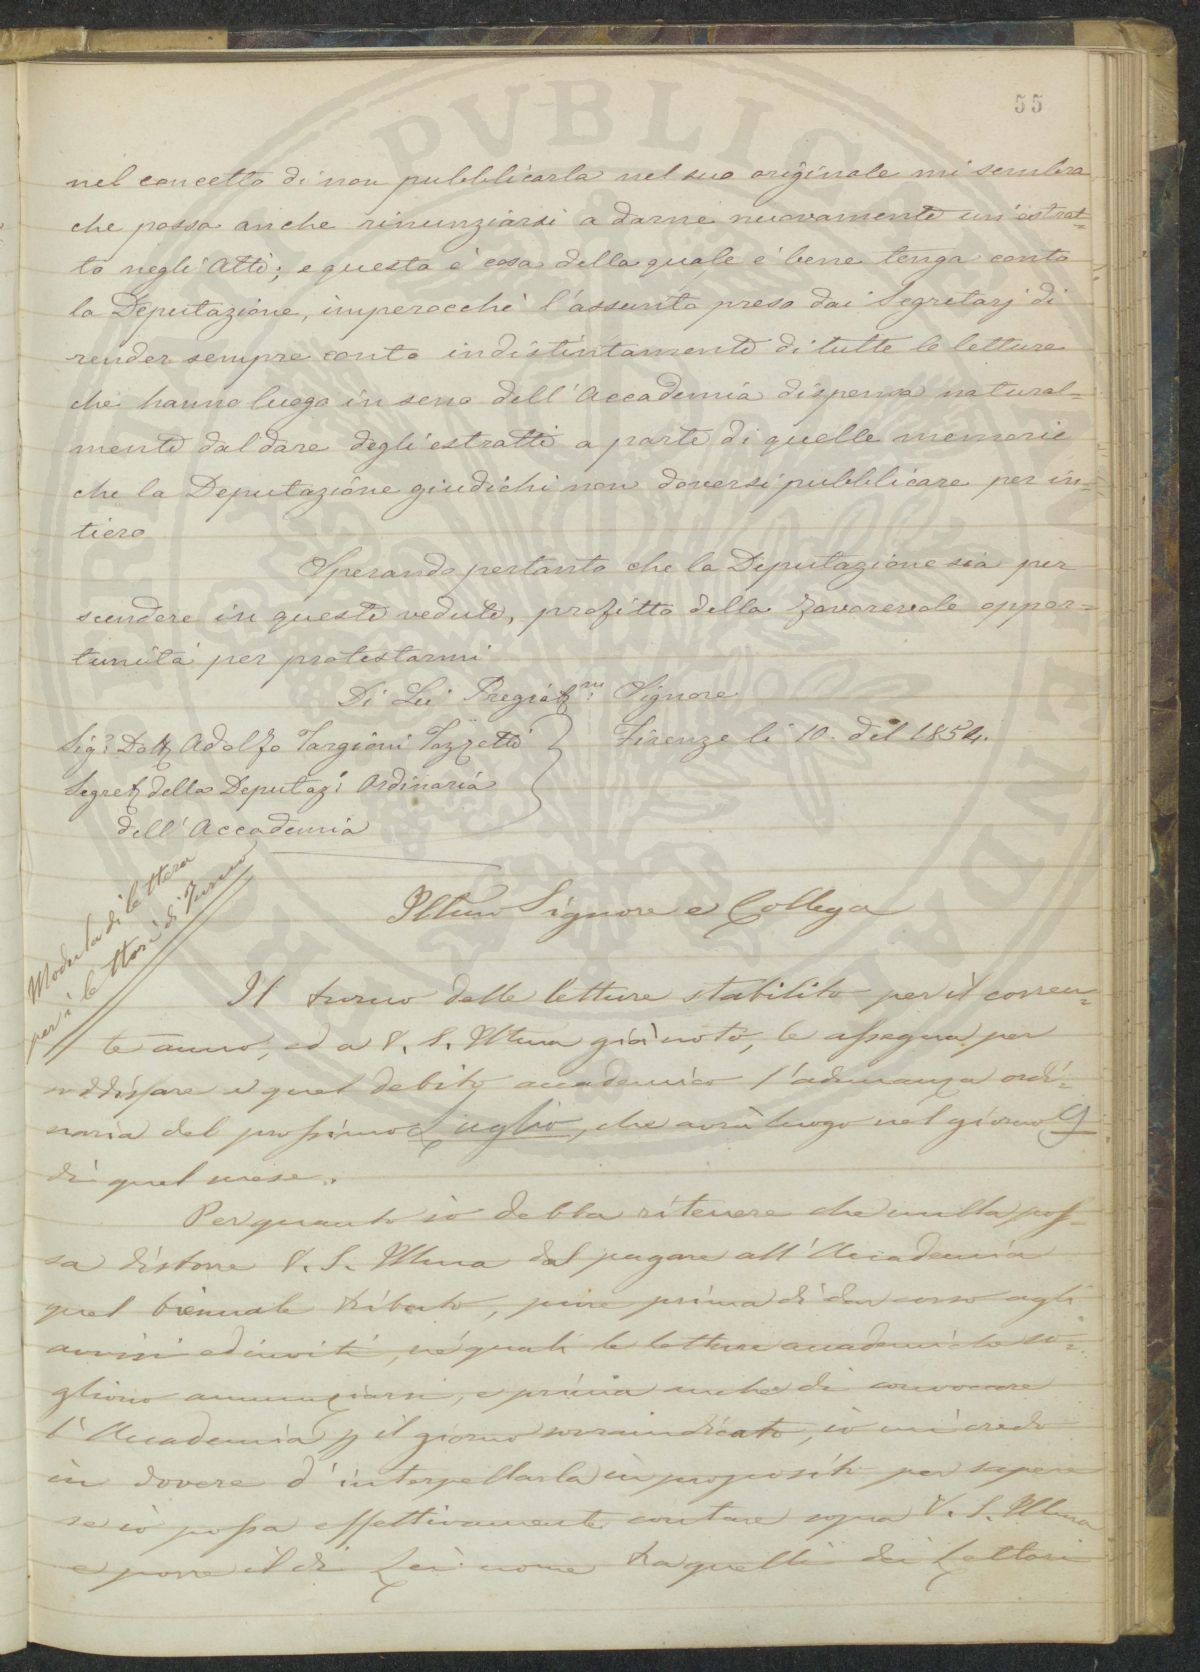 55
nel concetto di non pubblicarla nel suo originale mi sembra
che possa anche rinunziarsi a darne nuovamente un'estrat=
to negli Atti; e questa è cosa della quale è bene tenga conto
la Deputazione, imperocchè l'assunto preso dai Segretarj di
render sempre conto indistintamente di tutte le letture
che hanno luogo in seno dell'Accademia dispensa natural=
mente dal dare degli estratti a parte di quelle memorie
che la Deputazione giudichi non doversi pubblicare per in=
tiero
Sperando pertanto che la Deputazione sia per
scendere in queste vedute, profitto della favorevole oppor=
tunità per protestarmi
Di Lei Pregiat.mo Signore
Sig.r Dott Adolfo Targioni Tozzetti
Firenze li 10. del 1854.
Segret della Deputaz. Ordinaria
dell'Accademia
Modula di lettera
per i lettori di Turno
Illmo Signore e Collega
Il turno delle letture stabilito per il corren=
te anno, ed a V. S. Illma già noto, le assegna per
soddisfare a quel debito accademico l'adunanza ordi=
naria del prossimo Luglio, che avrà luogo nel giorno 9
di quel mese.
Per quanto io debba ritenere che nulla pos=
sa distorre V. S. Illma dal pagare all'Accademia
quel biennale tributo, pure prima di dar corso agli
avvisi ed inviti, ne quali le letture accademiche so=
gliono annunziarsi, e prima anche di convocare
l'Accademia p il giorno sovraindicato, io mi credo
in dovere d'interpellarla in proposito per sapere
se io possa effettivamente contare sopra V. S. Illma
e porre il di Lei nome tra quelli dei Lettori